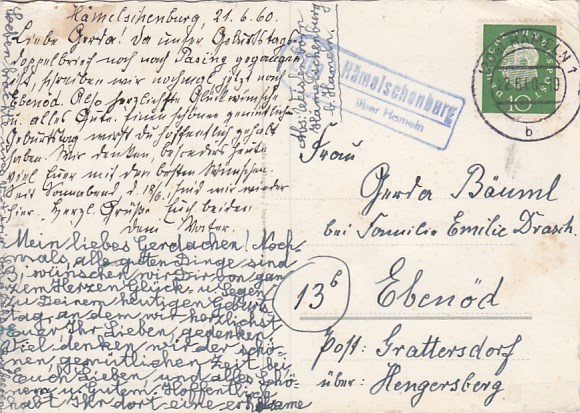 Hämelschenburg, 21.6.60.
Liebe Gerda! Da unser Geburtstags-
doppelbrief noch nach Pasing gegangen
ist, schreiben wir nochmal jetzt nach
Ebenöd. Also herzlichste Glückwünsche
u. alles Gute. Einen schönen gemütlichen
Geburtstag wirst du hoffentlich gehabt
haben. Wir denken, besonders heute
viel Euer mit den besten Wünschen.
Seit Sonnabend d. 18/6. sind wir wieder
hier. Herzl. Grüße Euch beiden
Mein liebes Gerdachen! Noch-
mals alle guten Dinge sind
3, wünschen wir Dir von gan-
zem Herzen Glück- u. Segen
zu Deinem heutigen Geburts-
tag, an dem wir herzlichst
Euer Ihr Lieben, gedenken.
Viel denken wir der schö-
nen, gemütlichen Zeit bei
Euch Lieben, und alles Schö-
nem u. Gutem. Hoffentlich
habt Ihr dort eine erholsame
Hämelschenburg
b. Hameln.
Hämelschenburg
über Hameln
DEUTSCHE BUNDESPOST
10
HAMELN 1
b
Frau
Gerda Bäuml
bei Familie Emilie Drasch.
13b
Ebenöd
Post: Grattersdorf
über: Hengersberg